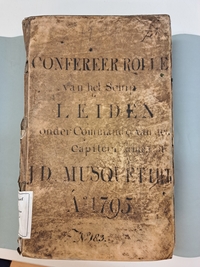 CONFEREER ROLLE
van het Schip
LEIDEN
onder Commando van den
Capitein
J D MUSQUETIER
Aº 1795